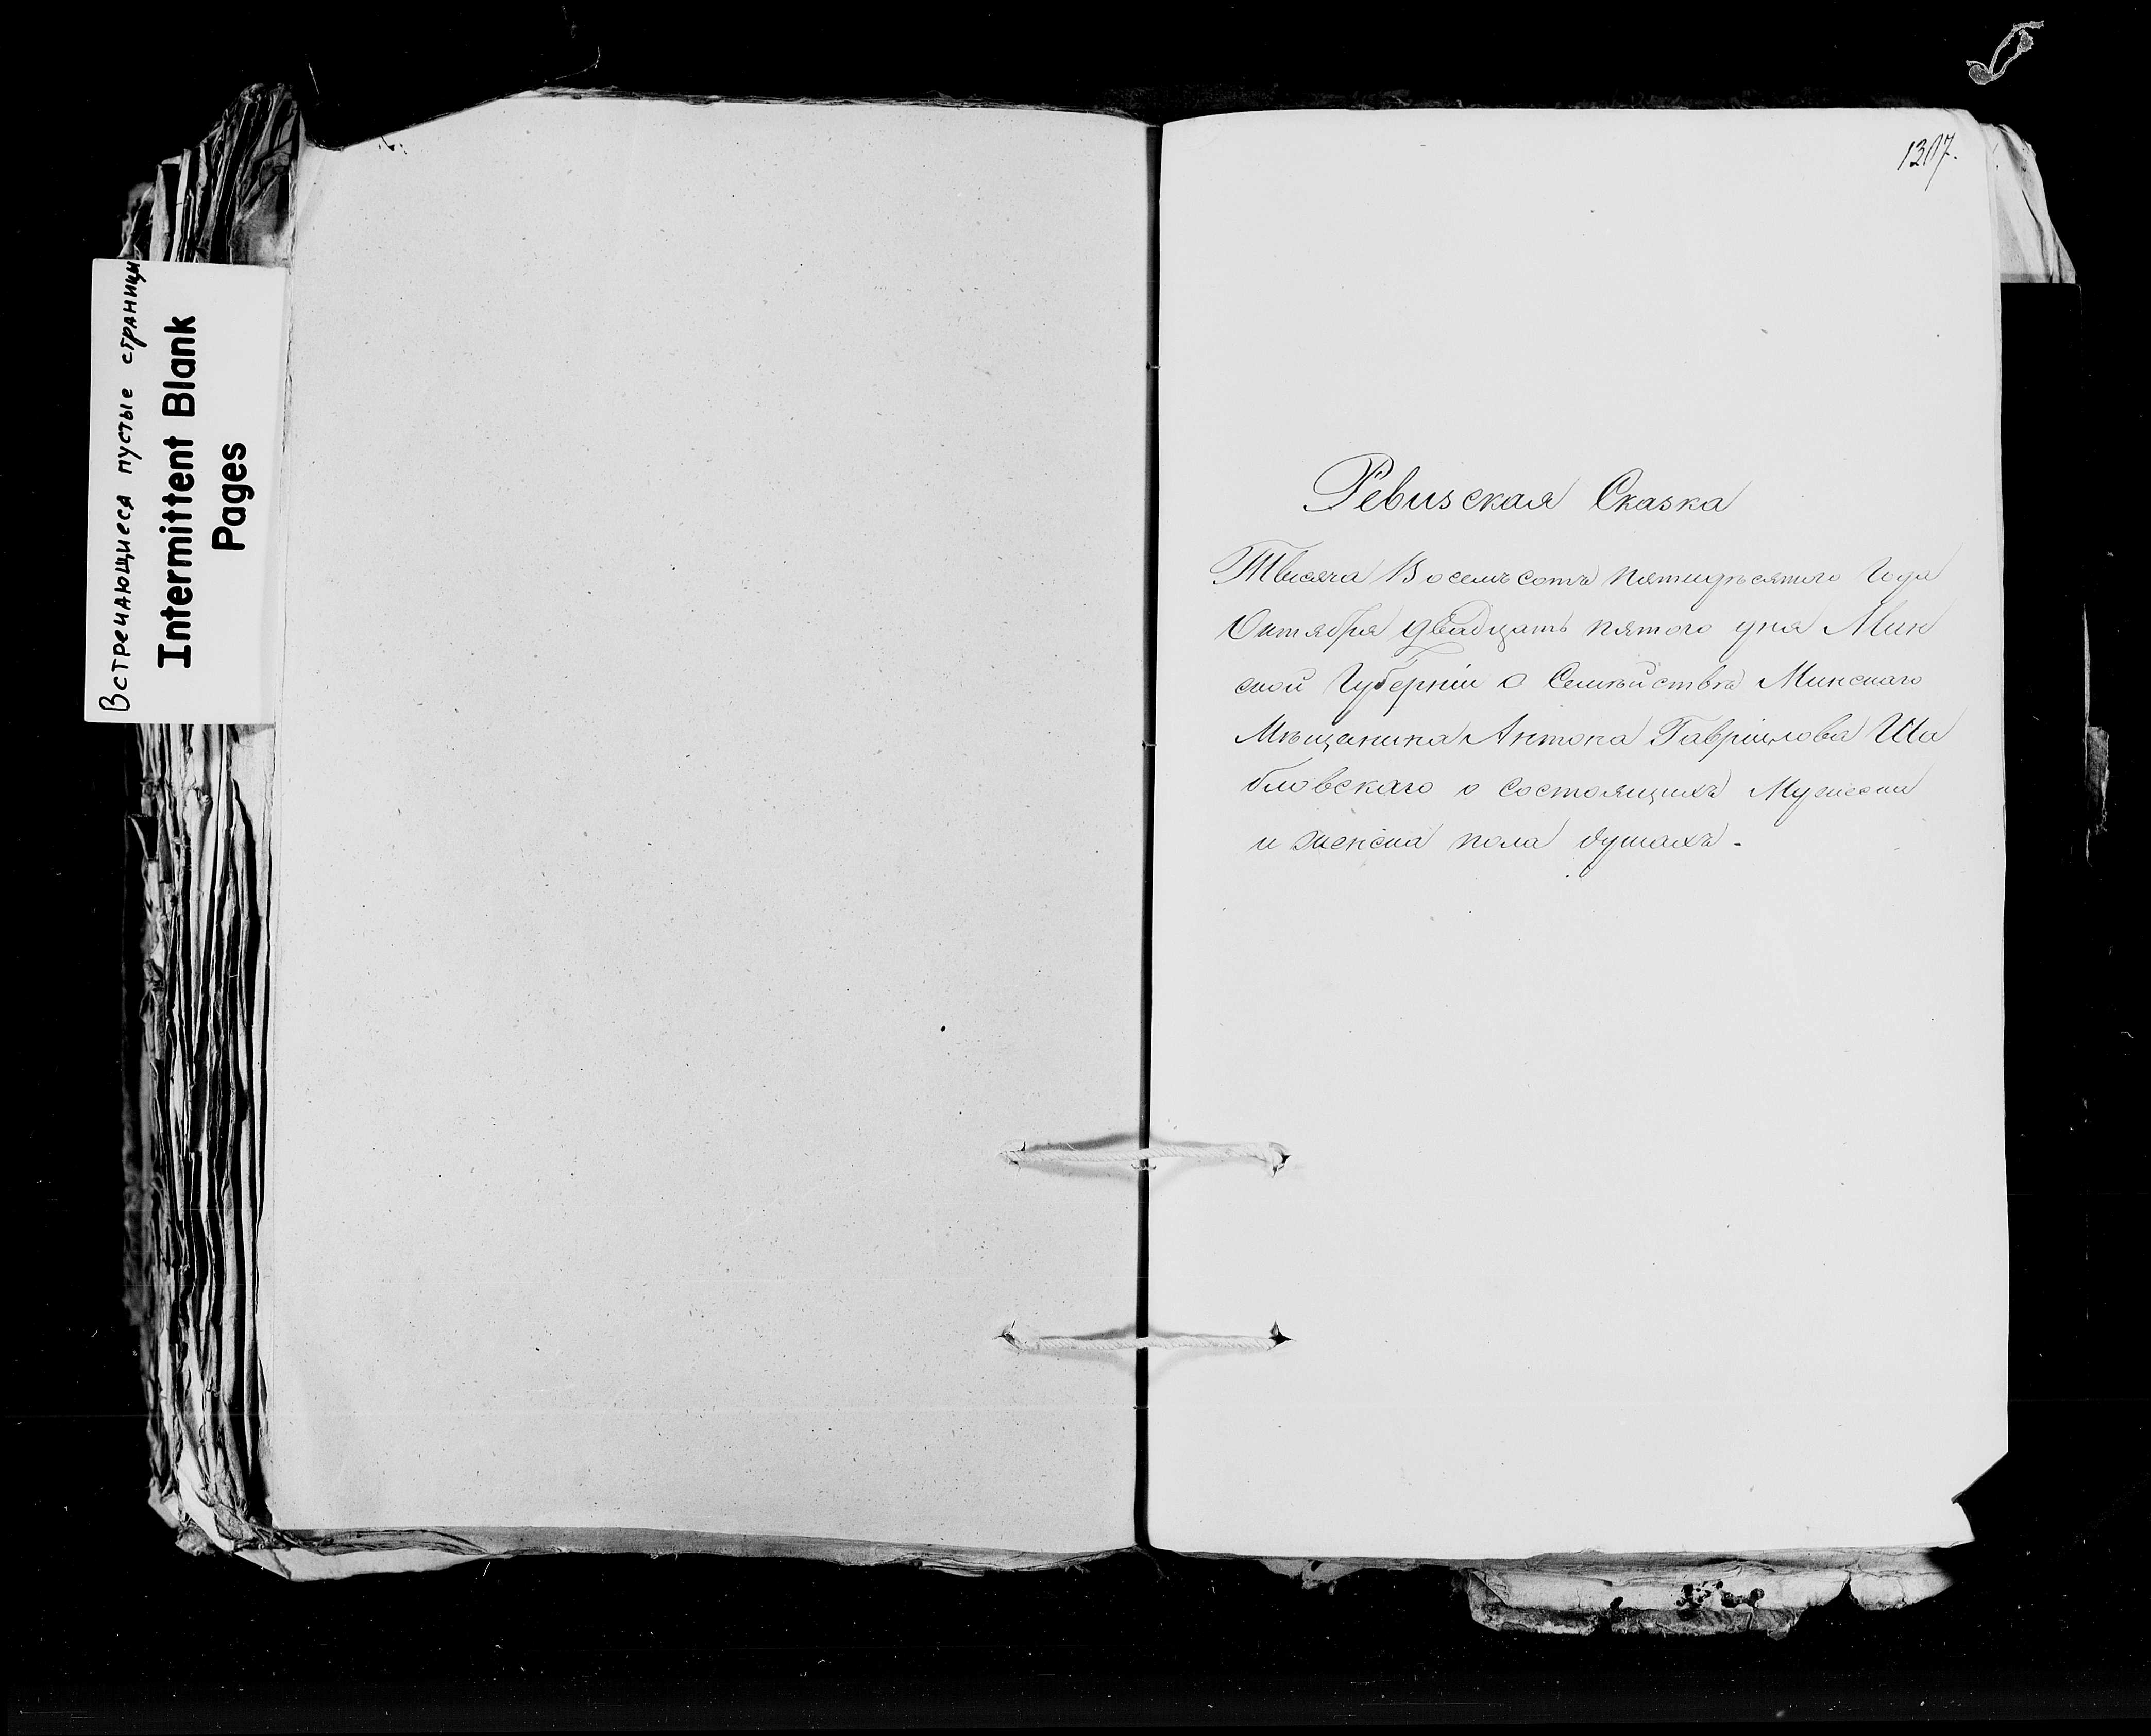 Встречающиеся пустые страницы
Intermittent Blank
Pages
1307.
Ревизская Сказка
Тысяча Восемьсотъ пятидѣсятого Года
Октября двадцать пятого дня Мин
ской Губерніи о Семѣйствѣ Минскаго
Мѣщанина Антона Гавріилова Ша
бловскаго о состоящихъ Мужеска
и женска пола душахъ.